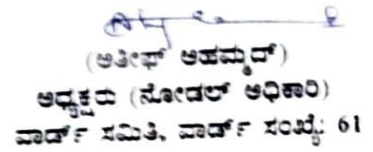 (ಅತೀಫ್ ಅಹಮ್ಮದ್)
ಅಧ್ಯಕ್ಷರು (ನೋಡಲ್ ಅಧಿಕಾರಿ)
ವಾರ್ಡ್ ಸಮಿತಿ, ವಾರ್ಡ್ ಸಂಖ್ಯೆ: 61